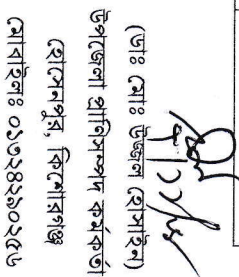 (ডাঃ মোঃ উজ্জ্বল হোসাইন)
উপজেলা প্রাণিসম্পদ কর্মকর্তা
হোসেনপুর, কিশোরগঞ্জ
মোবাইলঃ ০১৭২৪২৯০২৫৬